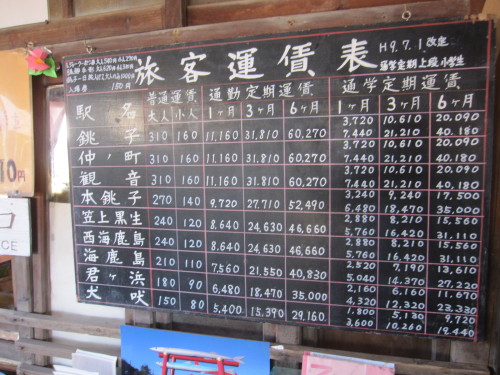 旅客運賃表
H9.7.1改定
通学定期上段小学生
入場券 150円
駅名 普通運賃 通勤定期運賃 通学定期運賃
大人 小人 1ヶ月 3ヶ月 6ヶ月 1ヶ月 3ヶ月 6ヶ月
3,720 10,610 20,090
銚子 310 160 11,160 31,810 60,270 7,440 21,210 40,180
3,720 10,610 20,090
仲ノ町 310 160 11,160 31,810 60,270 7,440 21,210 40,180
3,720 10,610 20,090
観音 310 160 11,160 31,810 60,270 7,440 21,210 40,180
3,240 9,240 17,500
本銚子 270 140 9,720 27,710 52,490 6,480 18,470 35,000
2,880 8,210 15,560
笠上黒生 240 120 8,640 24,630 46,660 5,760 16,420 31,110
2,880 8,210 15,560
西海鹿島 240 120 8,640 24,630 46,660 5,760 16,420 31,110
2,520 7,190 13,610
海鹿島 210 110 7,560 21,550 40,830 5,040 14,370 27,220
2,160 6,160 11,670
君ヶ浜 180 90 6,480 18,470 35,000 4,320 12,320 23,330
1,800 5,130 9,720
犬吠 150 80 5,400 15,390 29,160 3,600 10,260 19,440
0円
ICE